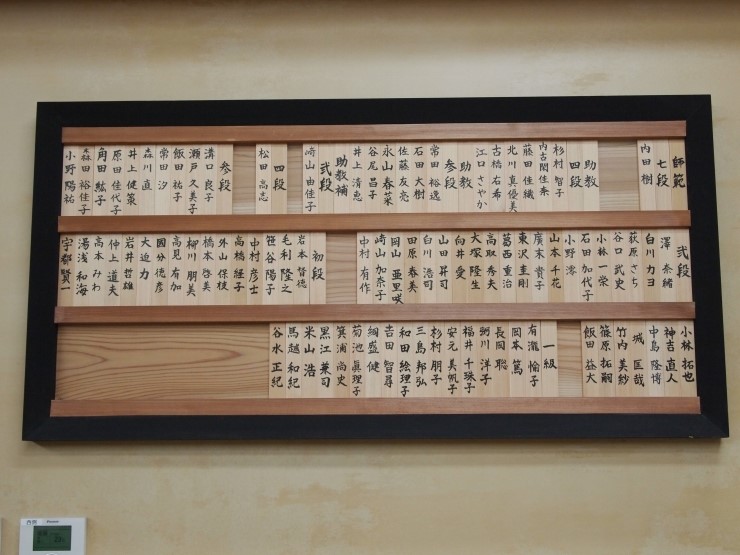 師範
七段
内田 樹
助教
四段
杉村 智子
内古閑佳奈
藤田 佳織
北川 真優美
古橋 右希
江口 さやか
助教
参段
常田 裕逸
石田 大樹
佐藤 友亮
永山 春菜
谷尾 昌子
井上 清恵
助教補
弐段
崎山 由佳子
四段
松田 高志
参段
溝口 良子
瀬戸 久美子
飯田 祐子
常田 汐
森川 直
井上 健策
原田 佳代子
角田 紘子
森田 裕佳子
小野 陽祐
弐段
澤 奈緒
白川 カヨ
荻原 さち
谷口 武史
小林 一栄
石田 加代子
小野 澪
山本 千花
廣末 貴子
東沢 圭剛
葛西 重治
高取 秀夫
大塚 隆生
向井 愛
山田 昇司
白川 浩司
田原 春美
岡山 亜里咲
崎山 加奈子
中村 有作
初段
岩本 督徳
毛利 隆之
笹谷 陽子
中村 彦士
高橋 経子
外山 保枝
橋本 啓美
柳川 朋美
高見 有加
國分 徳彦
大迫 力
岩井 哲雄
仲上 道夫
高本 みわ
湯浅 和海
宇都 賢一
小林 拓也
神吉 直人
中島 隆博
城 匡哉
竹内 美紗
篠原 拓嗣
飯田 益大
一級
有瀧 愉子
岡本 篤
長岡 聡
粥川 洋子
福井 千珠子
安元 美帆子
杉村 朋子
三島 邦弘
和田 絵理子
吉田 智尋
綱盛 健
菊池 眞理子
箕浦 尚史
黒江 兼司
米山 浩
馬越 和紀
谷水 正紀